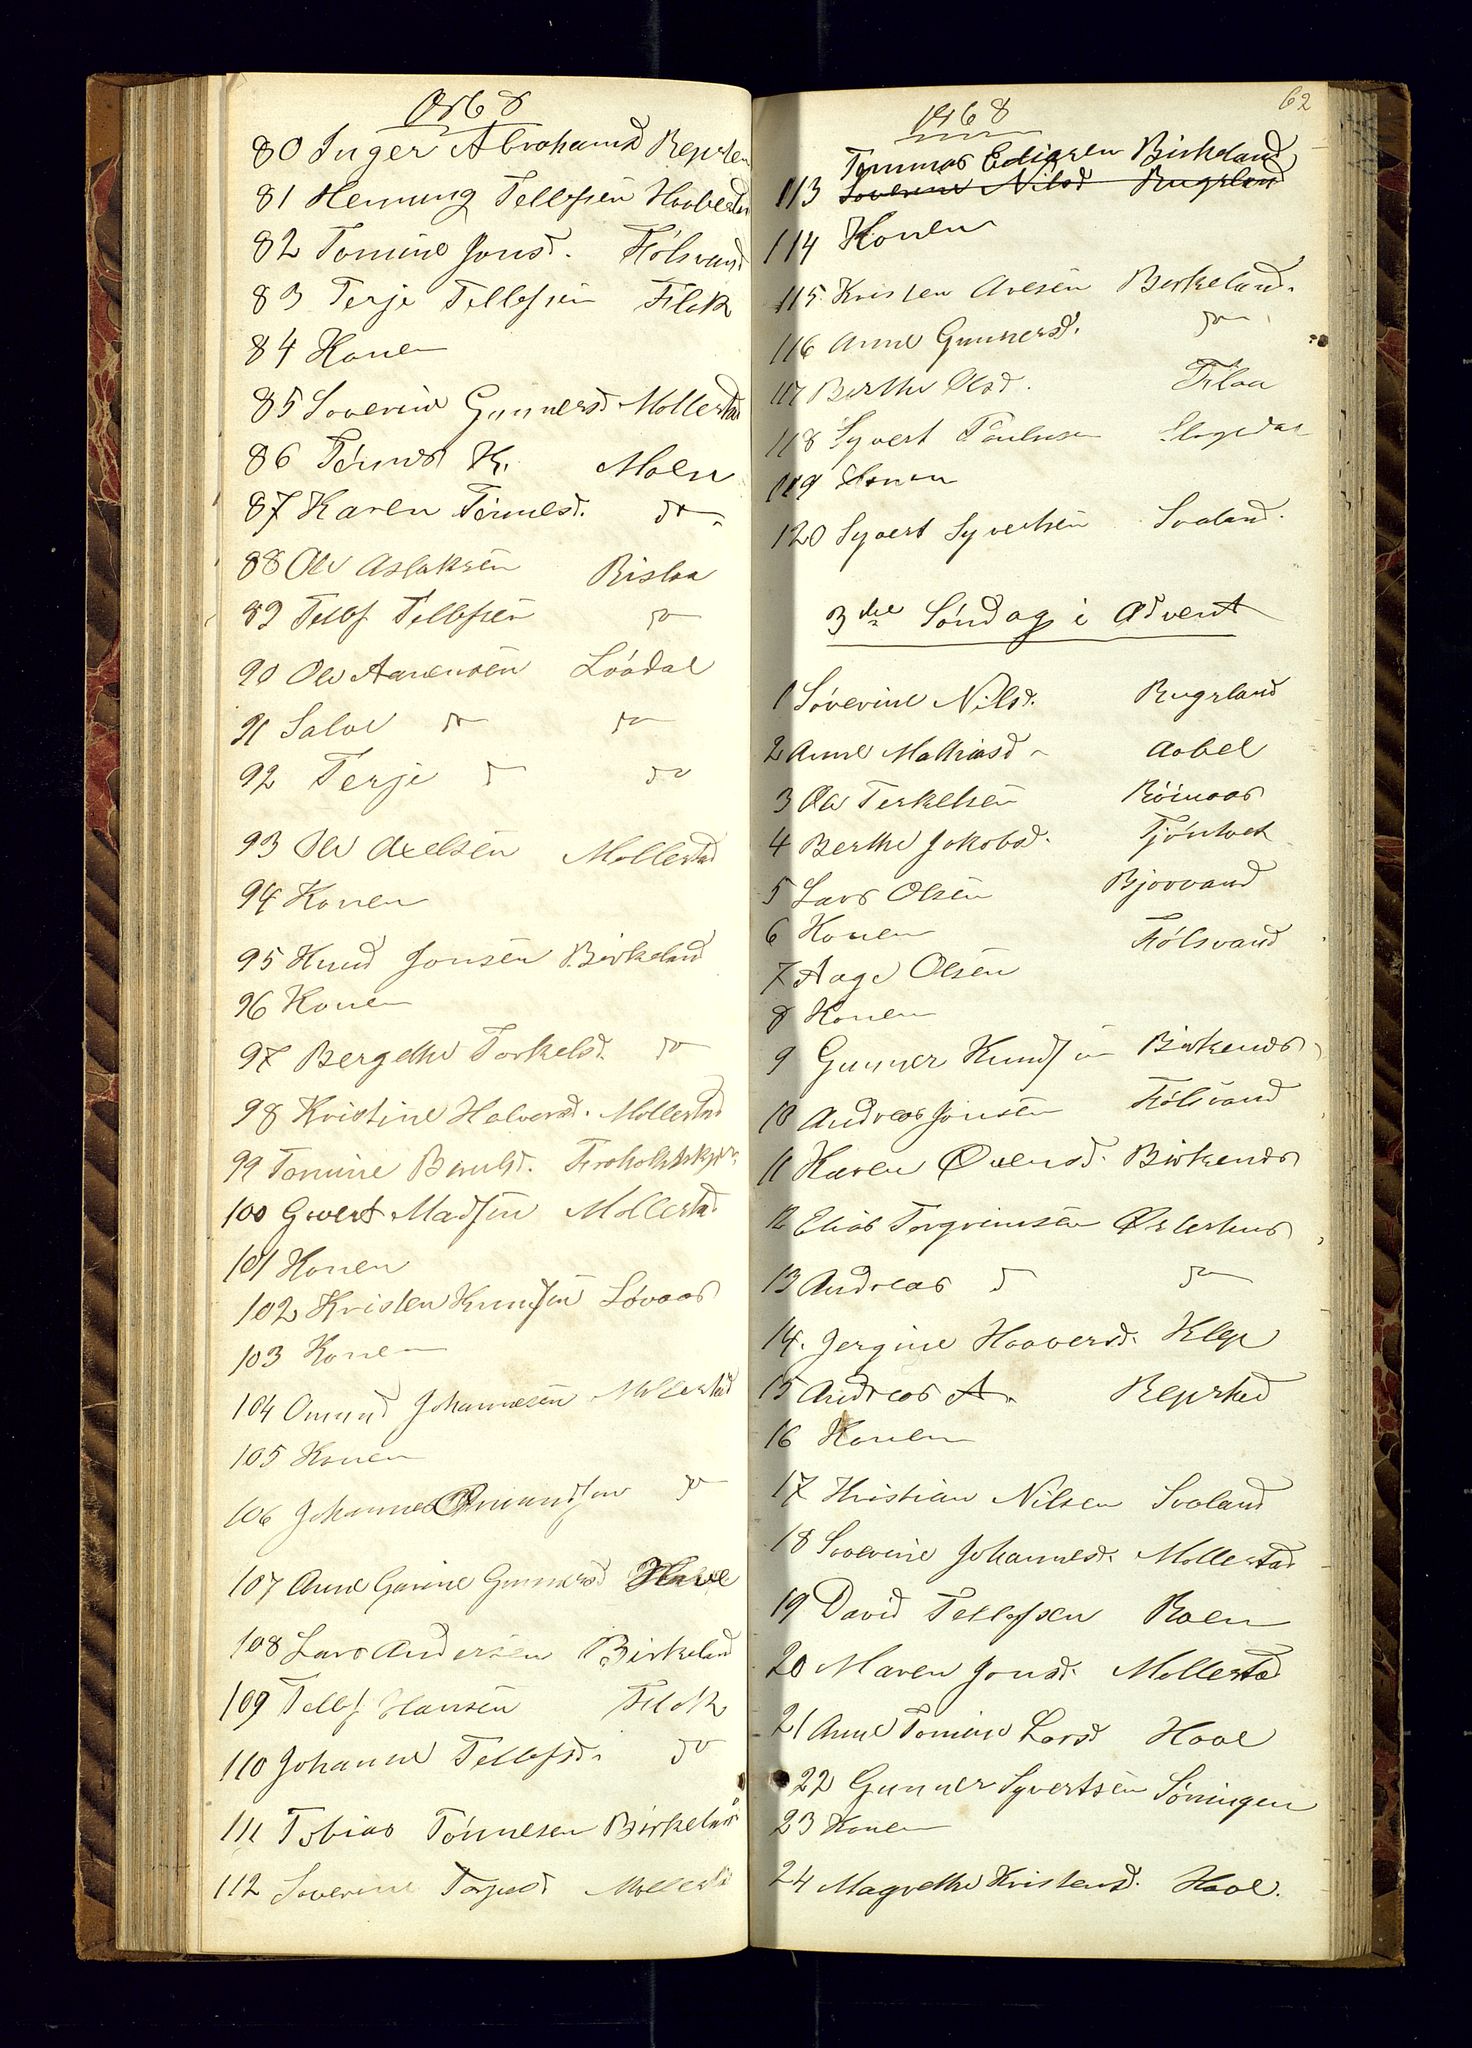 1868
80 Inger Abrahamsd Repsten
81 Henning Tellefsen Haabesta
82 Tomine Jonsd. Fidlsvand
83 Terje Tellefsen Flak
84 Konen
85 Severine Gunnersd Mollestad
86 Tønnes K. Moen
87 Karen Tønnesd. do
88 Ole Aslaksen Rislaa
89 Tellef Tellefsen do
90 Ole Aanensen Løvdal
91 Salve do do
92 Terje do do
93 Ole Axelsen Mollestad
94 Konen
95 Knud Jonsen Birkeland
96 Konen
97 Bergethe Torkelsd. do
98 Kristine Halvorsd. Mollestad
99 Tomine
100 Givert Madsen Mollestad
101 Konen
102 Kristen Knudsen Løvaas
103 Konen
104 Omund Johannesen Mollestad
105 Konen
106 Johannes Omundsen do
107 Anne Garine Gunnersd
108 Lars Andersen Birkeland
109 Tellef Hansen Flak
110 Johanne Tellefsd. do
111 Tobias Tønnesen Birkeland
112 Severine Mollestad
62
1868
Tønnes Birkeland
113 Severine Nilsd Rugsland
114 Konen
115 Kristen Avesen Birkeland.
116 Anne Gunnersd. do
117 Berthe Olsd. Filaa
118 Syvert
119 Konen
120 Syvert Syvertsen Svaland.
3die Søndag i Advent
1 Severine Nilsd. Rugsland
2 Anne Mathiasd Aabel
3 Ole Terkelsen Røinaas
4 Berthe Jakobsd. Tjøntvet
5 Lars Olsen Bjorvand
6 Konen Fidlsvand
7 Aage Olsen
8 Konen
9 Gunner Knudsen Birkenes
10 Andreas Jonsen Fidlsvand
11 Karen Birkenes
12 Elias Torgrimsen Østerhus
13 Andreas do do
14. Jorgine Haaversd. Klep
15 Andreas A. Repstad
16 Konen
17 Kristian Nilsen Svaland
18 Severine Johannesd. Mollestad
19 David Tellefsen Roen
20 Maren Jonsd. Mollestad
21 Anne Tomine Larsd Haae
22 Gunner Syvertsen Søningen
23 Konen
24 Magrethe Kristensd. Haae.